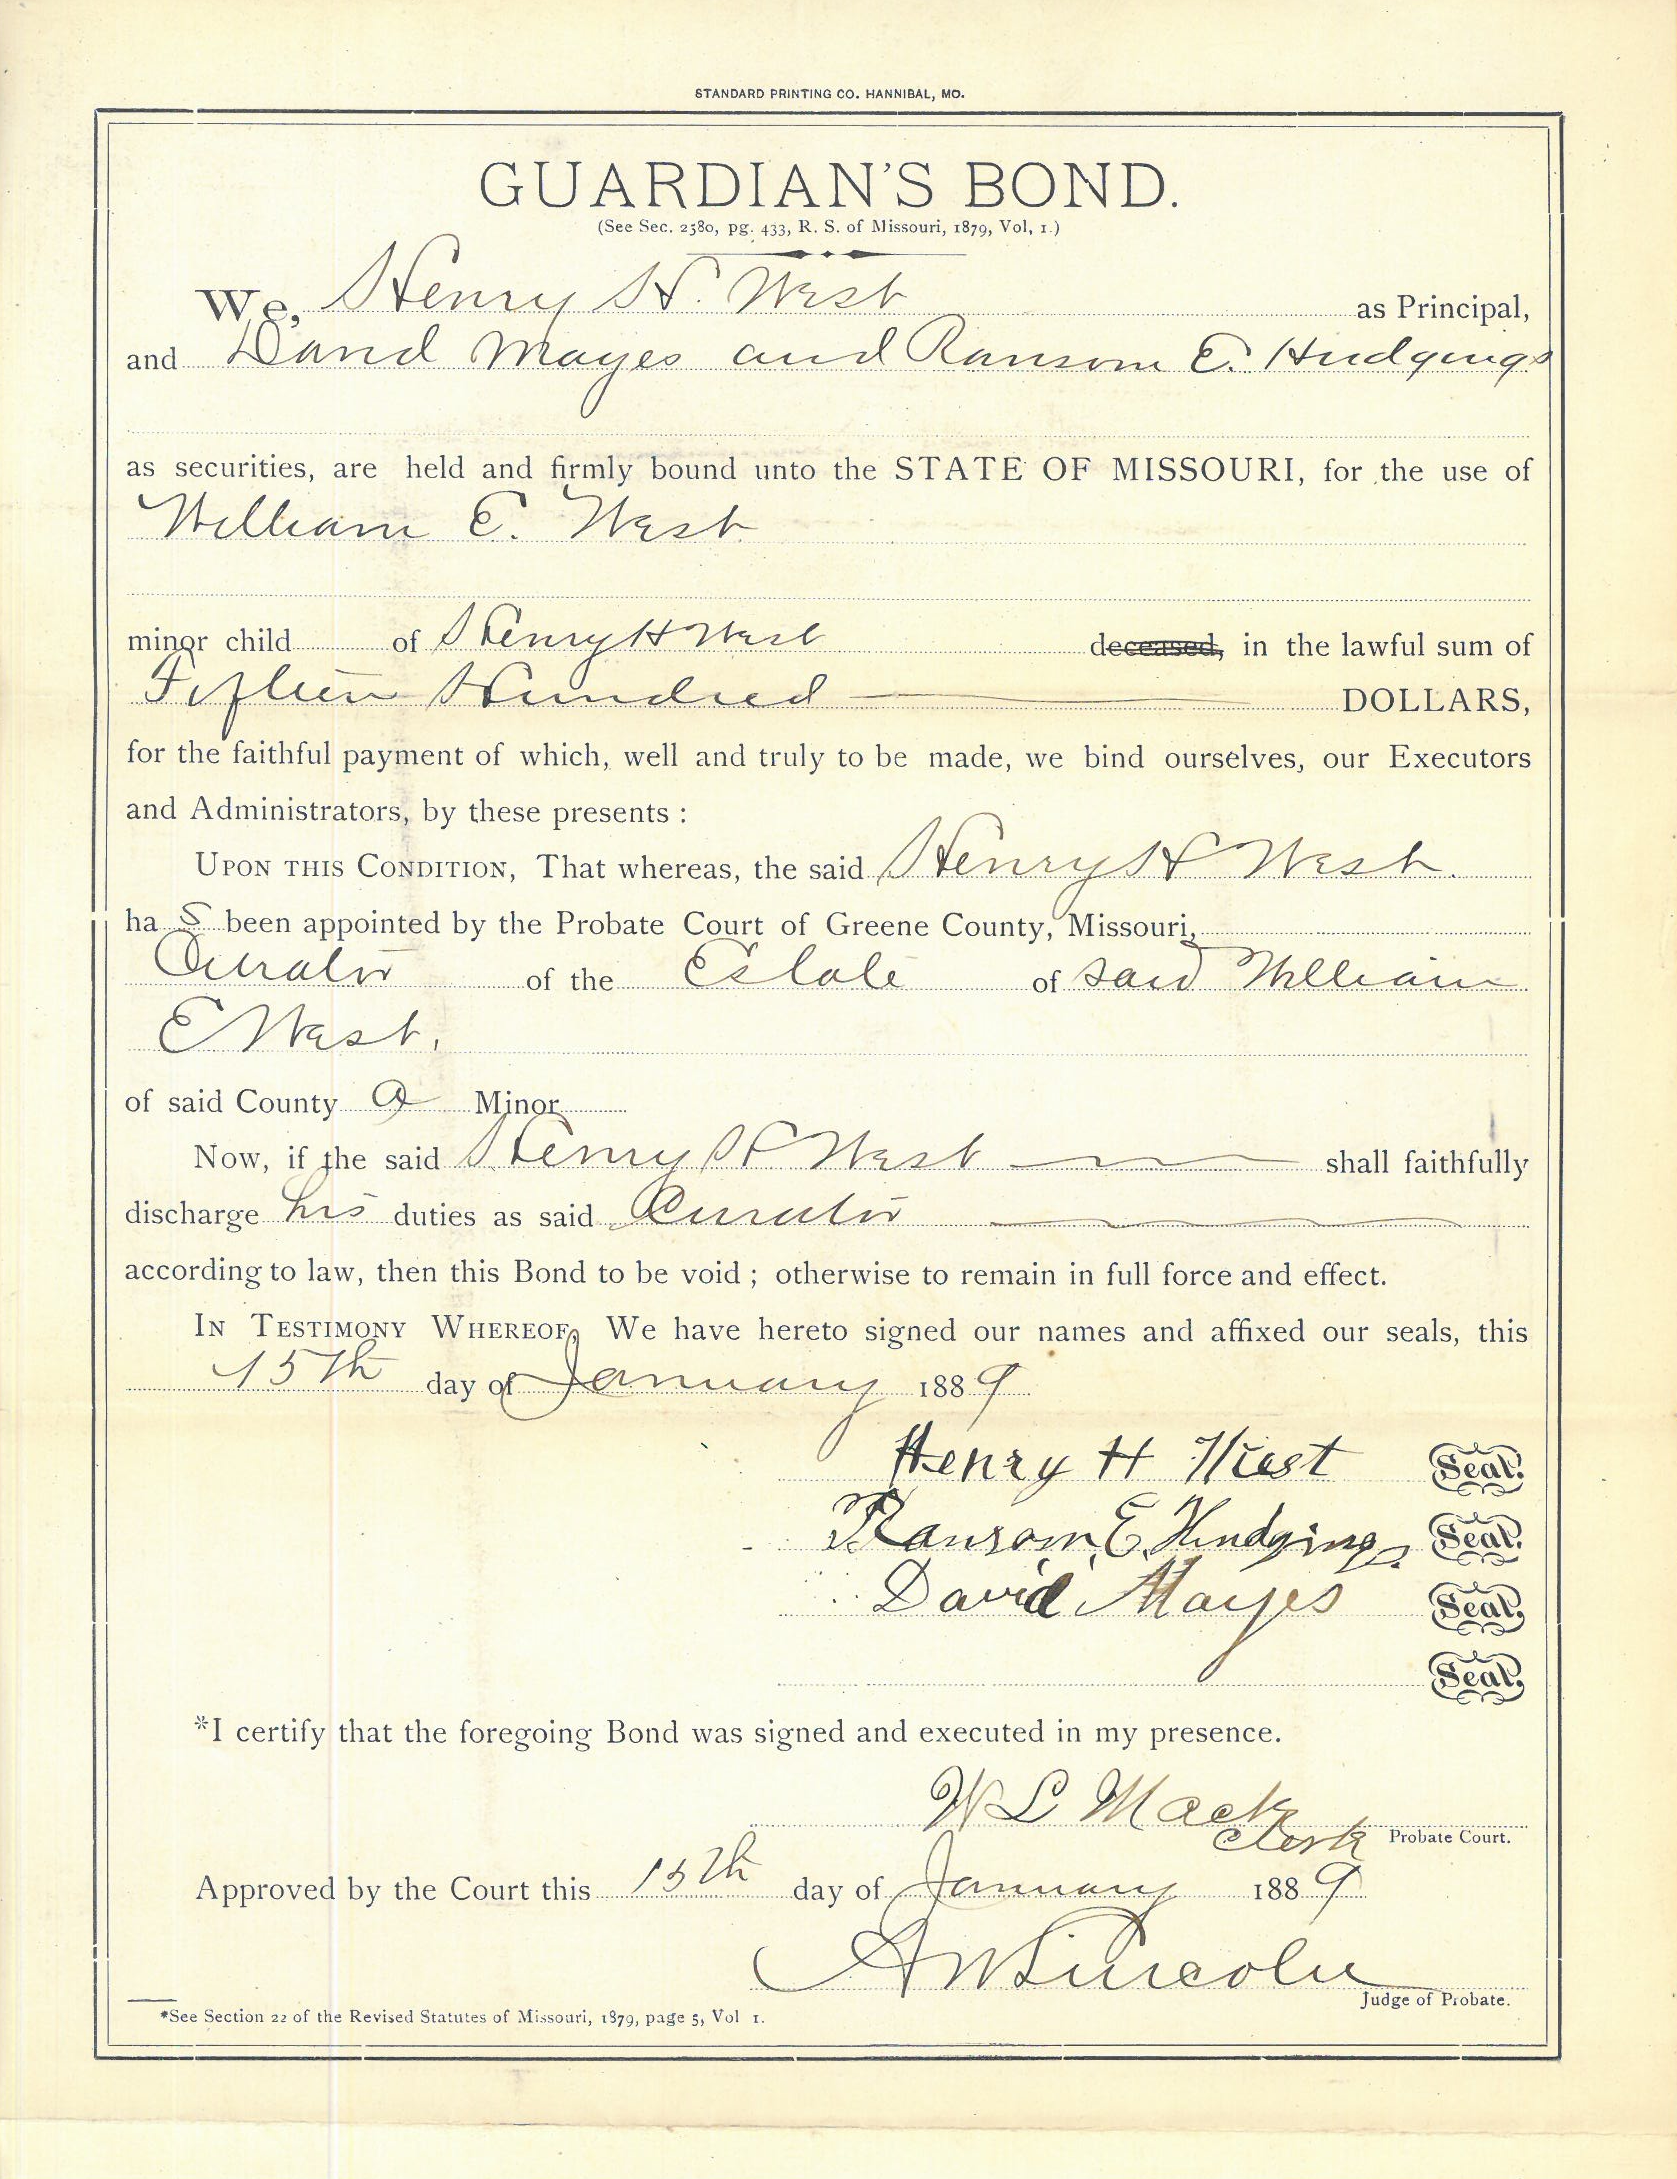 STANDARD PRINTING CO. HANNIBAL, MO.
GUARDIAN'S BOND.
(See Sec. 2580, pg. 433, R. S. of Missouri, 1879, Vol, 1.)
We, Henry H. West as Principal,
and David Mayes and Ransom E. Hudgings
as securities, are held and firmly bound unto the STATE OF MISSOURI, for the use of
William E. West
minor child of Henry H West deceased, in the lawful sum of
Fifteen Hundred DOLLARS,
for the faithful payment of which, well and truly to be made, we bind ourselves, our Executors
and Administrators, by these presents :
UPON THIS CONDITION, That whereas, the said Henry H West.
ha s been appointed by the Probate Court of Greene County, Missouri,
Curator of the Estate of said William
E West.
of said County a Minor
Now, if the said Henry H West shall faithfully
discharge his duties as said Curator
according to law, then this Bond to be void ; otherwise to remain in full force and effect.
IN TESTIMONY WHEREOF, We have hereto signed our names and affixed our seals, this
15th day of January 1889
Henry H West Seal.
Ransom E. Hudgings. Seal.
David Mayes Seal.
Seal.
*I certify that the foregoing Bond was signed and executed in my presence.
W L Mack
Clerk Probate Court.
Approved by the Court this 15th day of January 1889
A W Lincoln
Judge of Probate.
*See Section 22 of the Revised Statutes of Missouri, 1879, page 5, Vol 1.